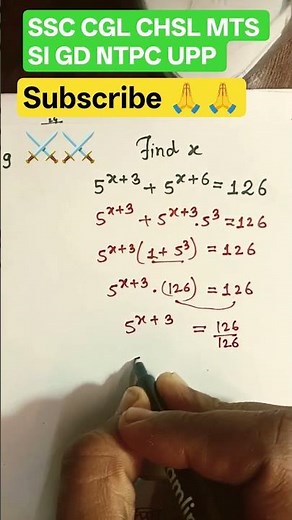 SSC CGL CHSL MTS
SI GD NTPC UPP
Subscribe 🙏🙏
9 ⚔️⚔️ Find x
5^{x+3} + 5^{x+6} = 126
5^{x+3} + 5^{x+3} · 5^3 = 126
5^{x+3} (1 + 5^3) = 126
5^{x+3} · (126) = 126
5^{x+3} = 126/126